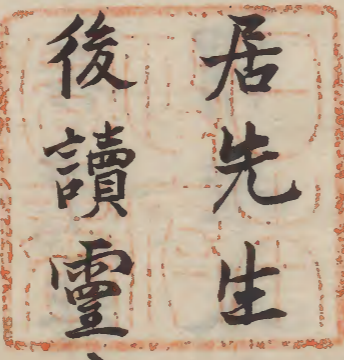 居先生
後讀霊